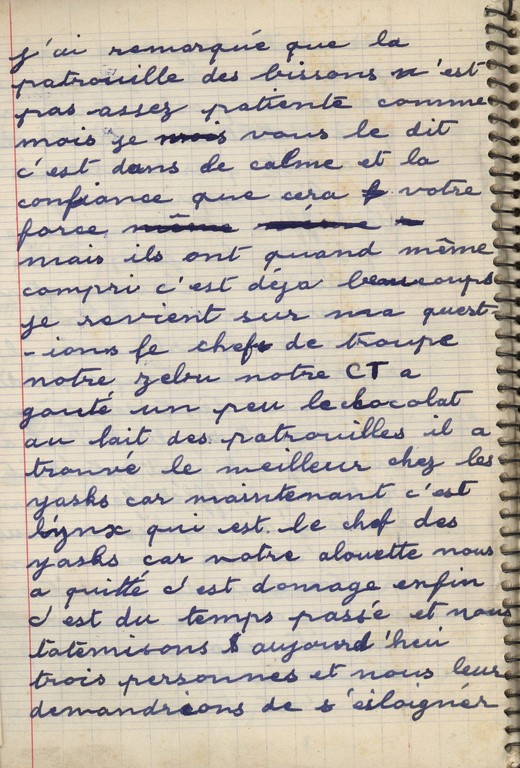 j'ai remarqué que la
patrouille des bissons n'est
pas assez patiente comme
mois je mois vous le dit
c'est dans le calme et la
confiance que cera votre
force même même
mais ils ont quand même
compri c'est déja beaucoups
je revient sur ma quest-
-ions le chef de troupe
notre zebu notre CT a
gouté un peu le chocolat
au lait des patrouilles il a
trouvé le meilleur chez les
yasks car maintenant c'est
lynx qui est le chef des
yasks car notre alouette nous
a quitté c'est domage enfin
c'est du temps passé et nous
totémisons aujourd'hui
trois personnes et nous leur
demandrieons de s'éiloignér